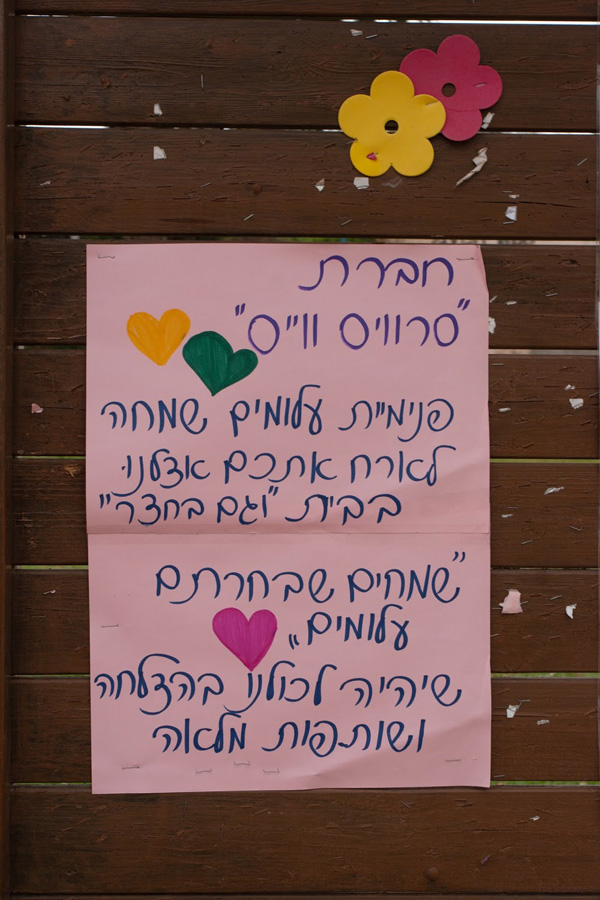 חברת
"סרוויס ווייס"
פנימיית עלומים שמחה
לארח אתכם אצלנו
בבית "וגם בחצר"
"שמחים שבחרתם
עלומים"
שיהיה לכולנו בהצלחה
ושותפות מלאה